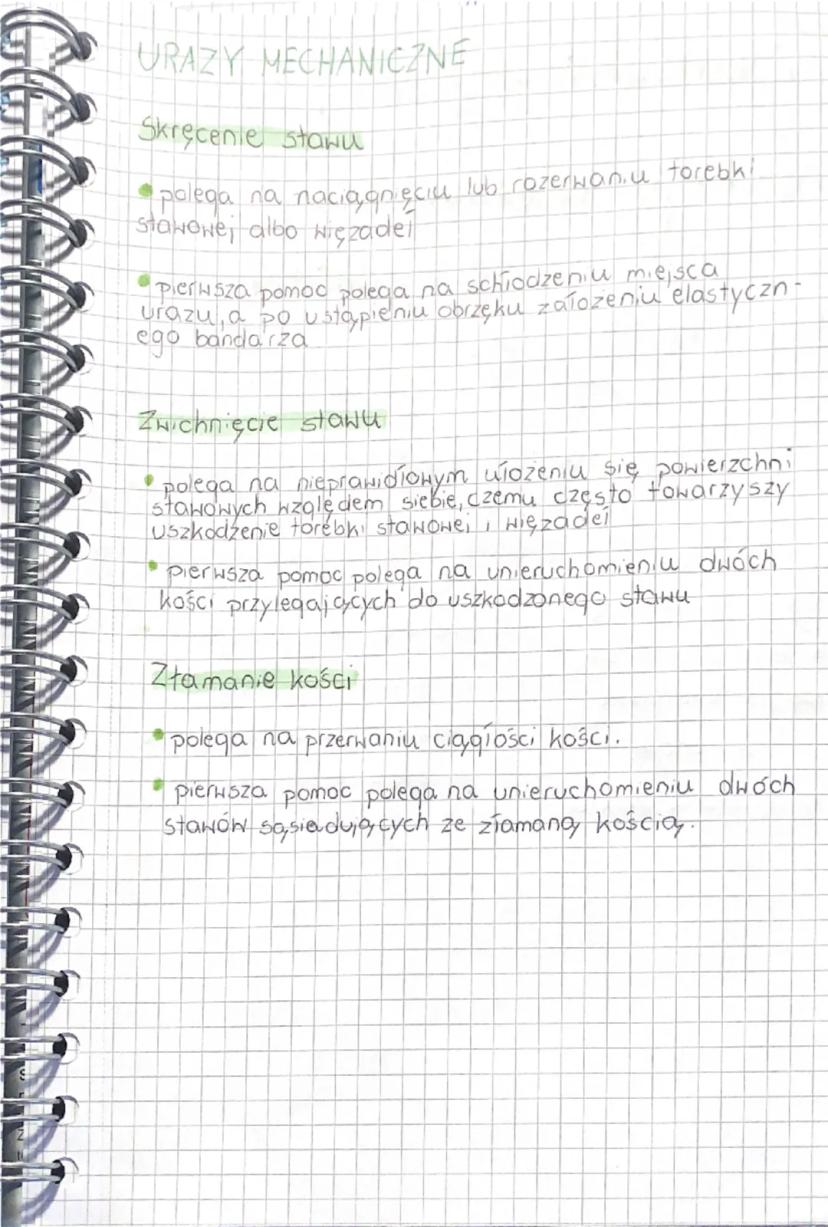 URAZY MECHANICZNE
Skręcenie stawu
• polega na naciągnięciu lub rozerwaniu torebki
stawowej albo więzadeł
• pierwsza pomoc polega na schłodzeniu miejsca
urazu, a po ustąpieniu obrzęku założeniu elastyczn-
ego bandarza
Zwichnięcie stawu
• polega na nieprawidłowym ułożeniu się powierzchni
stawowych względem siebie, czemu często towarzyszy
uszkodzenie torebki stawowej i więzadeł
• pierwsza pomoc polega na unieruchomieniu dwóch
kości przylegających do uszkodzonego stawu
Złamanie kości
• polega na przerwaniu ciągłości kości.
• pierwsza pomoc polega na unieruchomieniu dwóch
stawów sąsiadujących ze złamaną kością.